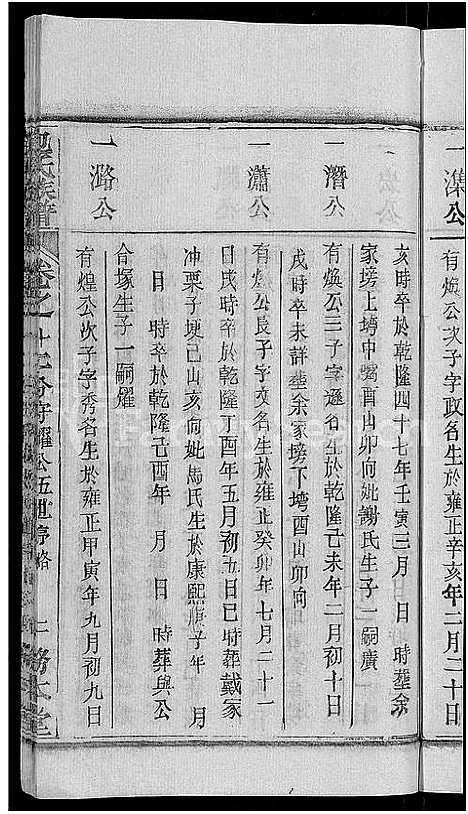 一潗公
有煥公次子字政名生於雍正辛亥年二月二十日
亥時卒於乾隆四十七年壬寅三月 日 時葬余
家塝上塆申䧺酉山卯向妣謝氏生子一嗣廣
一潛公
有煥公三子字遜名生於乾隆己未年二月初十日
戌時卒未詳葬余家塝下塆酉山卯向
一瀟公
有煌公長子字文名生於雍正癸卯年七月二十一
日戌時卒於乾隆丁酉年五月初五日巳時葬戴家
冲栗子埂己山亥向妣馬氏生於康熙庚子年 月
日 時卒於乾隆己酉年 月 日 時葬與公
合塚生子一嗣耀
一潞公
有煌公次子字秀名生於雍正甲寅年九月初九日
氏族譜
卷之十
公五世
二
務本堂